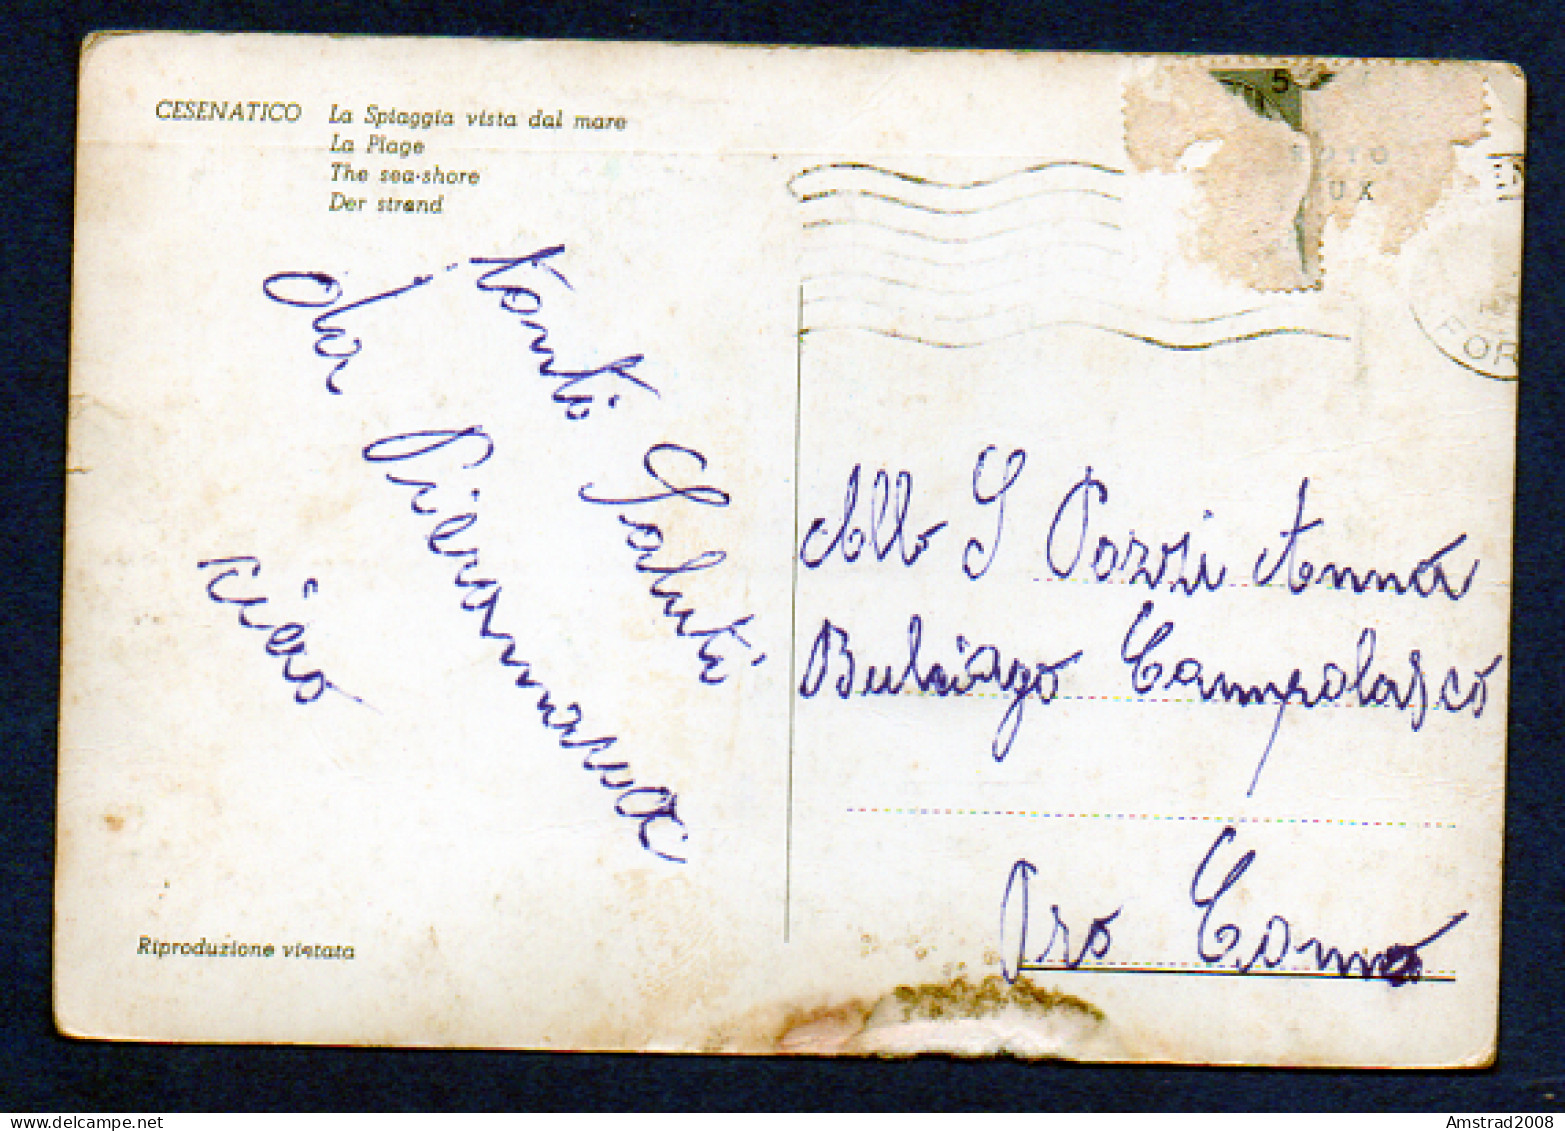 CESENATICO La Spiaggia vista dal mare
La Plage
The sea-shore
Der strand
5
FOTO
UX
FOR
tanti Saluti
da Pieranna
Alla S Pozzi Anna
Bulciago Campolasco
Pro Como
Riproduzione vietata
Amstrad2008